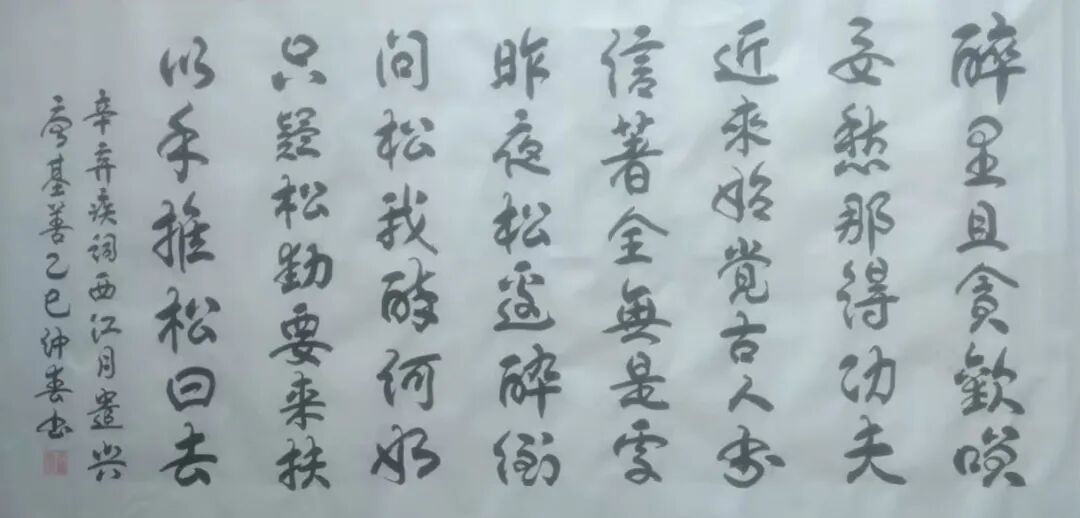 醉里且貪歡咲
要愁那得功夫
近來始觉古人书
信著全無是處
昨夜松邊醉倒
问松我醉何如
只疑松勸要来扶
以手推松曰去
辛弃疾词西江月遣兴
高基善乙巳仲春书